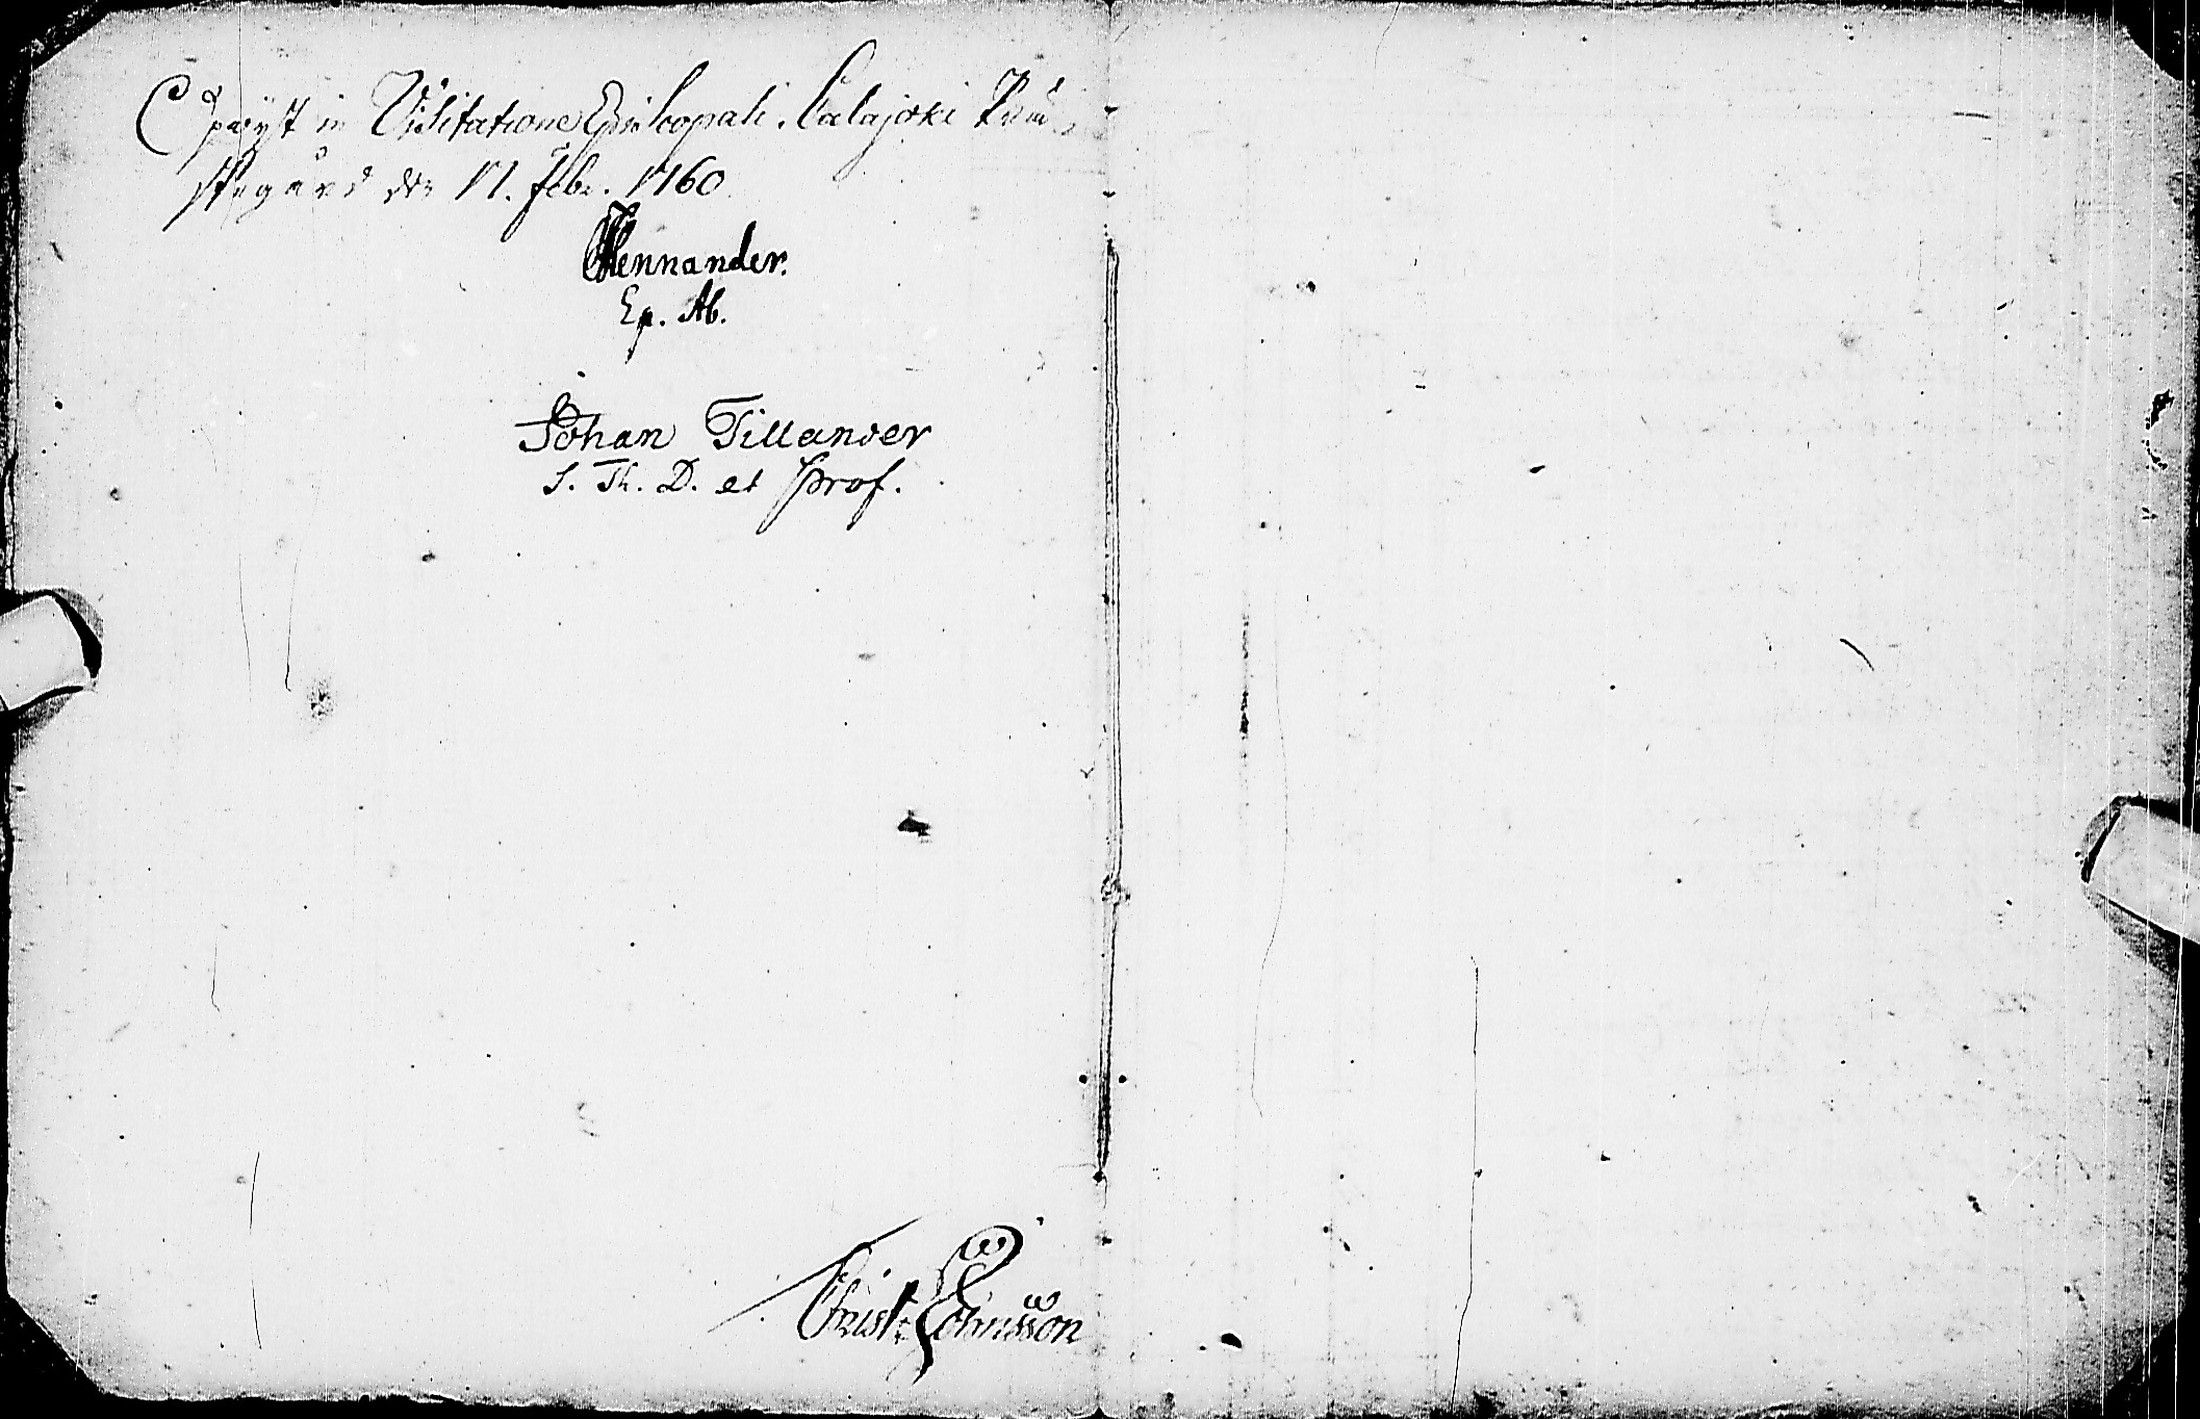 Upwyst in Visitatione Episcopali. Calajoki Präs=
stegård den 17. Febr. 1760.
CFMennander.
Ep. Ab.
Johan Tillander
S. Th. D. et Prof.
Christ: